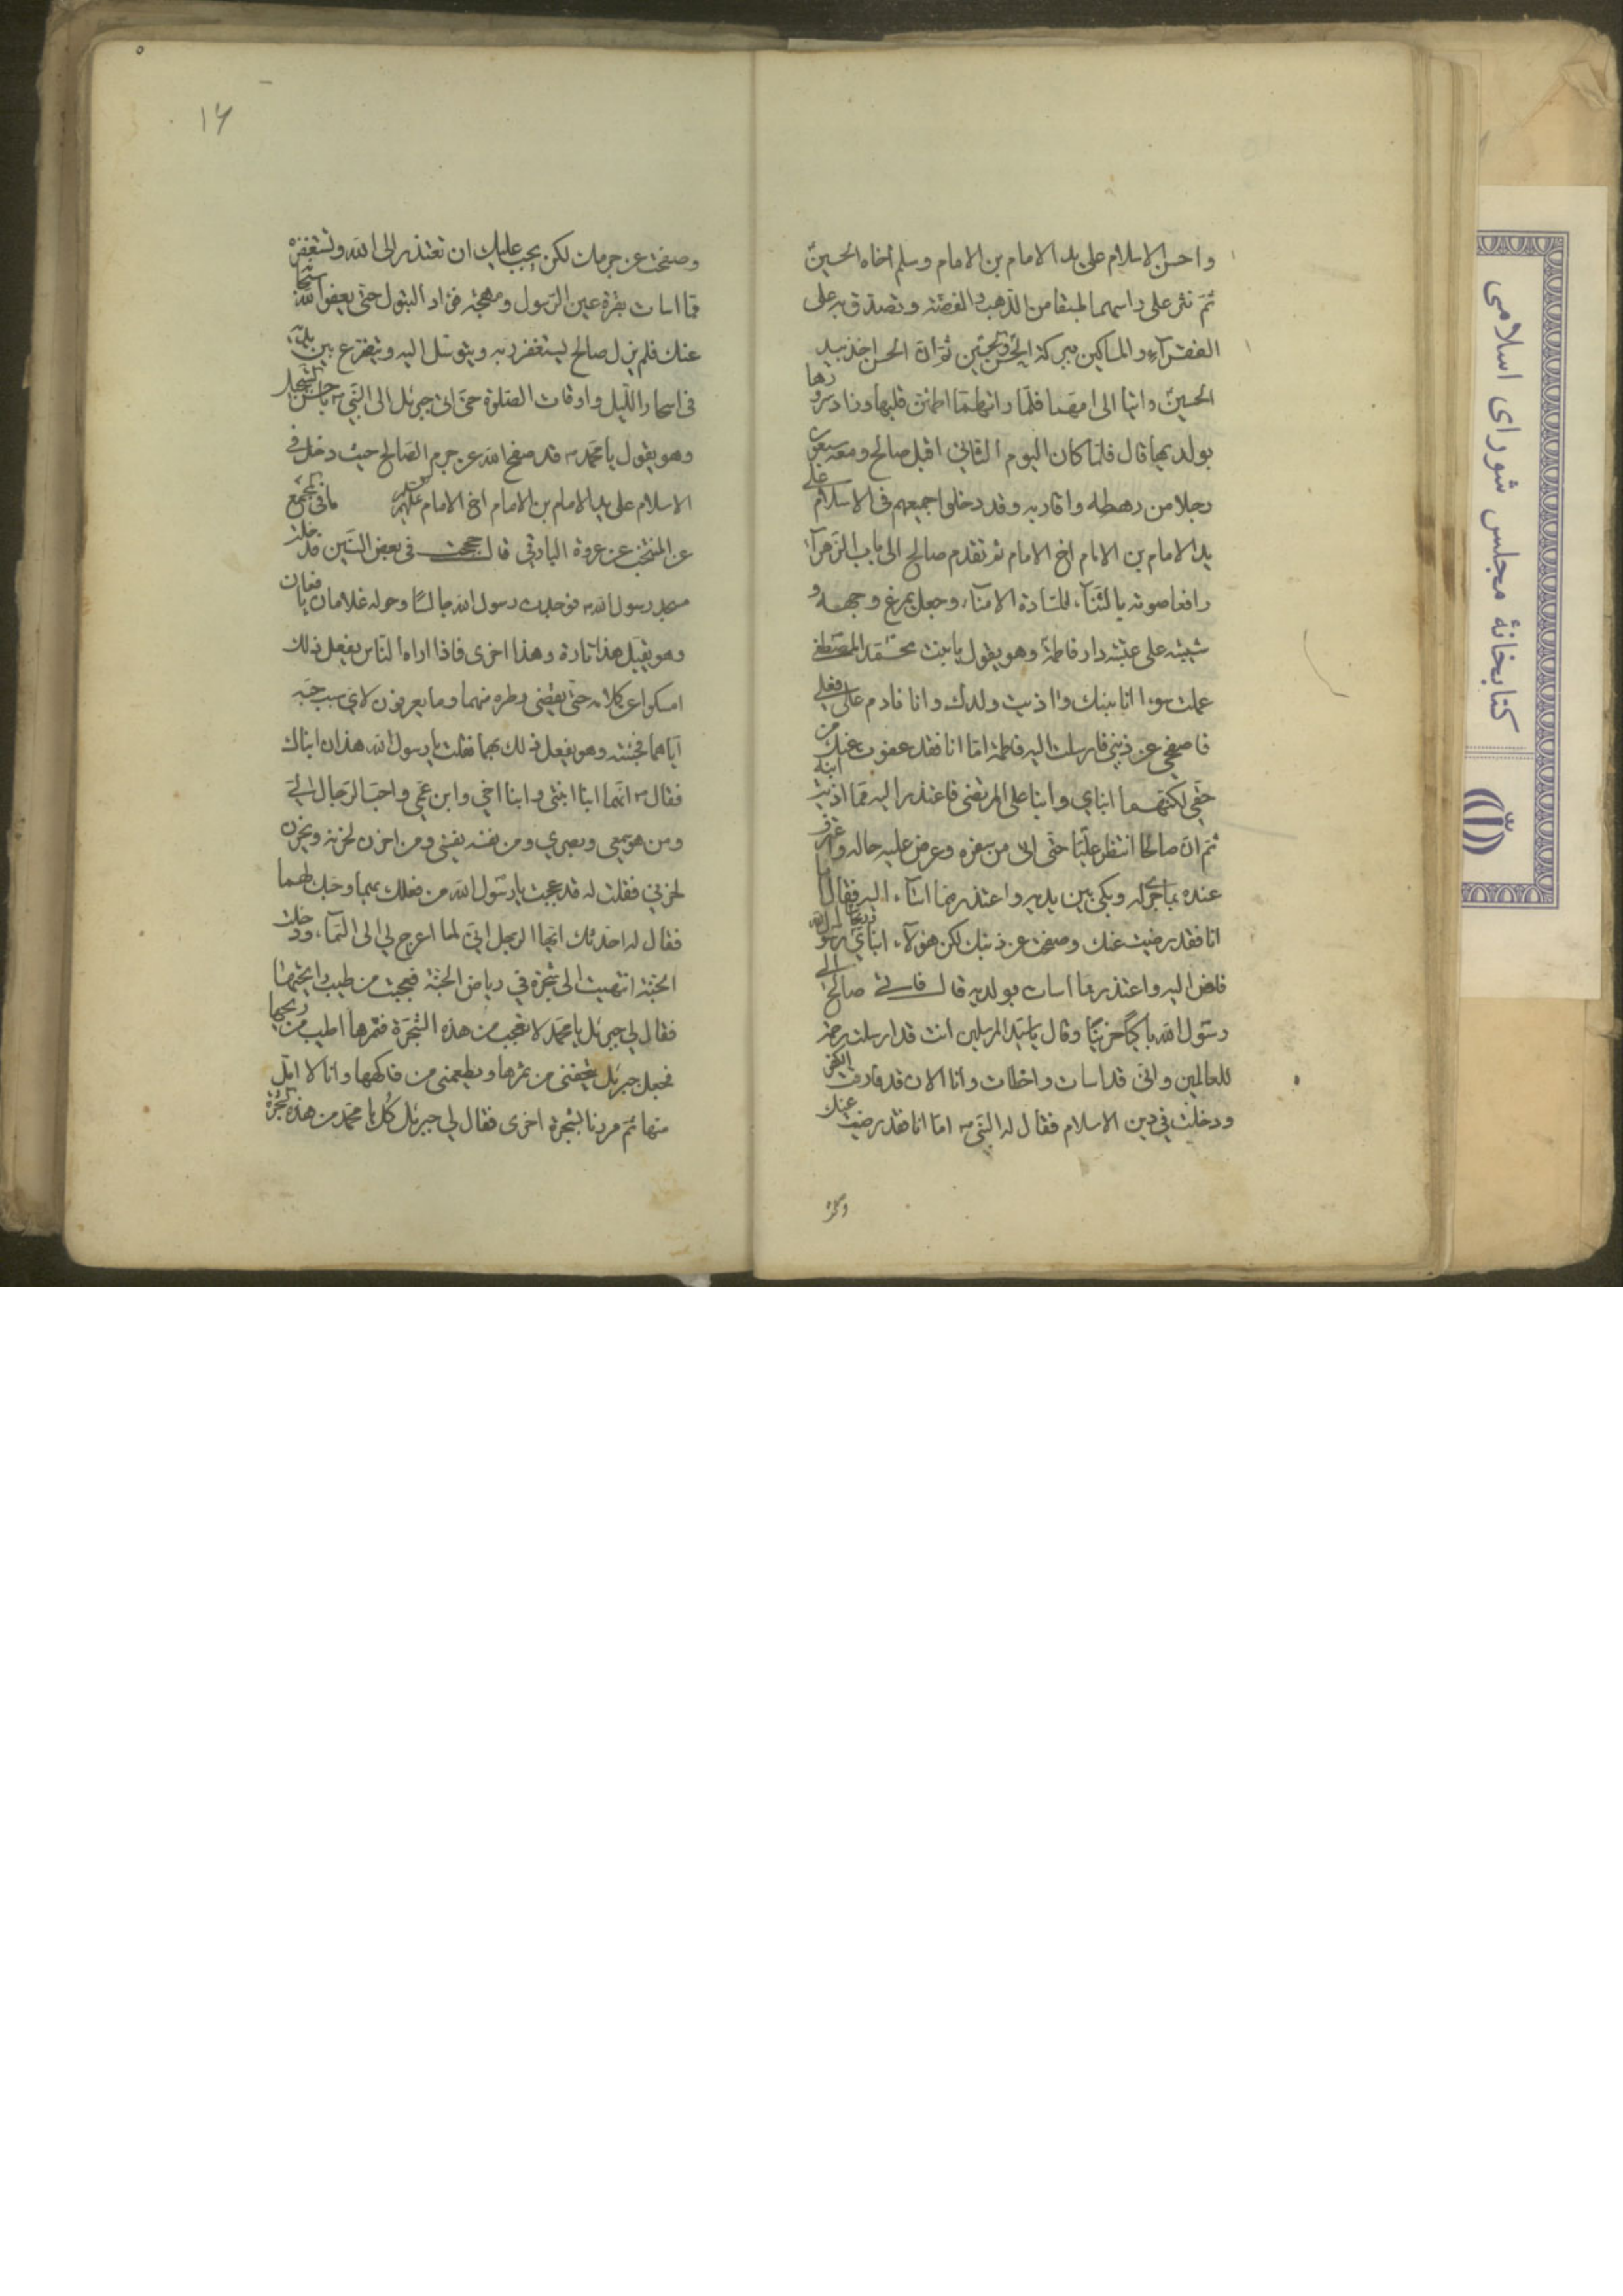 واحسن الاسلام على يد الامام بن الامام وسلم أخاه الحسين
ثم نثر على راسهما طبقا من الذهب والفضة وتصدق به على
الفقرآء والمساكين ببركة الحسن والحسين ثم ان الحسن اخذ بيد
الحسين واتيا الى امهما فلما راتهما اطمئن قلبها وزاد سرورها
بولديها قال فلما كان اليوم الثاني اقبل صالح ومعه سبعون
رجلا من رهطه واقاربه وقد دخلوا جميعهم في الاسلام على
يد الامام بن الامام اخ الامام ثم تقدم صالح الى باب الزهرآء
رافعا صوته بالثنآء للسادة الامنآء وجعل يمرغ وجهه و
شيبته على عتبة دار فاطمة وهو يقول يا بنت محمد المصطفى
عملت سوءا بابنك واذيت ولدك وانا نادم على فعلي
فاصفحي عن ذنبي فارسلت اليه فاطمة اما انا فقد عفوت عنك من
حقي لكنهما ابناي وابنا علي المرتضى فاعتذر اليه مما اذيت ابنه
ثم ان صالحا انتظر عليا حتى اتى من سفره وعرض عليه حاله واعترف
عنده بما جرى له وبكى بين يديه واعتذر مما اسآء اليه فقال يا
انا فقد رضيت عنك وصفحت عن ذنبك لكن هؤلآء ابناي وريحانتا رسول الله
فامض اليه واعتذر مما اسات بولديه قال فاتى صالح الى
رسول الله باكيا حزينا وقال يا سيد المرسلين انت قد ارسلت رحمة
للعالمين واني قد اسات واخطات وانا الان قد فارقت الكفر
ودخلت في دين الاسلام فقال له النبي ص اما انا فقد رضيت عنك
١۶
وصفحت عن جرمك لكن يجب عليك ان تعتذر الى الله وتستغفره
مما اسات بقرة عين الرسول ومهجة فواد البتول حتى يعفو الله
عنك فلم يزل صالح يستغفر ربه ويتوسل اليه ويتضرع بين يديه
في اسحار الليل واوقات الصلوة حتى اتى جبرئيل الى النبي ص
وهو يقول يا محمد ص قد صفح الله عن جرم الصالح حيث دخل في
الاسلام على يد الامام بن الامام اخ الامام
عن المنتخب عن عروة البارقي قال حججت في بعض السنين فدخلت
مسجد رسول الله ص فوجدت رسول الله جالسا وحوله غلامان يافعان
وهو يقبل هذا تارة وهذا اخرى فاذا اراه الناس يفعل ذلك
امسكوا عن كلامه حتى يقضي وطره منهما وما يعرفون لاي سبب حبه
اياهما فجئته وهو يفعل ذلك بهما فقلت يا رسول الله هذان ابناك
فقال ص انهما ابنا ابنتي وابنا اخي وابن عمي واحب الرجال الي
ومن هو سمعي وبصري ومن نفسه نفسي ومن احزن لحزنه ويحزن
لحزني فقلت له قد عجبت يا رسول الله من فعلك بهما وحبك لهما
فقال له احدثك ايها الرجل اني لما اعرج لي الى السمآء ودخلت
الجنة انتهيت الى شجرة في رياض الجنة فعجبت من طيب رايحتها
فقال لي جبرئيل يا محمد لا تعجب من هذه الشجرة فثمرها اطيب من ريحها
فجعل جبرئيل يتحفني من ثمرها ويطعمني من فاكهها وانا لا امل
منها ثم مررنا بشجرة اخرى فقال لي جبرئيل كل يا محمد من هذه الشجرة
كتابخانهٔ مجلس شورای اسلامی